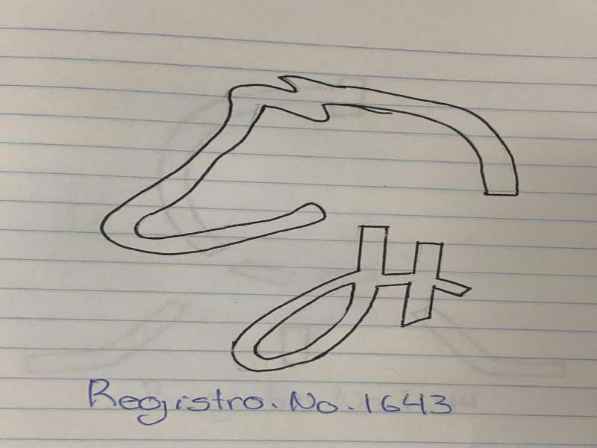 Registro. No. 1643